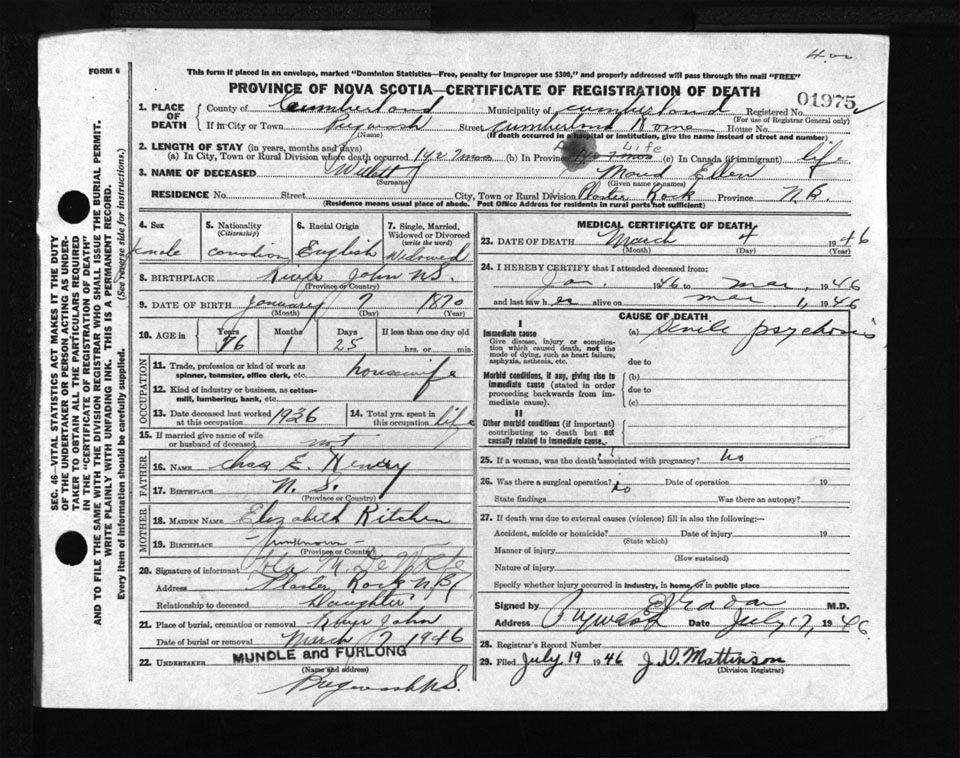 4.00
FORM 6
This form if placed in an envelope, marked "Dominion Statistics—Free, penalty for improper use $300," and properly addressed will pass through the mail "FREE"
PROVINCE OF NOVA SCOTIA—CERTIFICATE OF REGISTRATION OF DEATH
01975
1. PLACE OF DEATH
County of Cumberland Municipality of Cumberland Registered No.
(For use of Registrar General only)
If in City or Town Pugwash Street Cumberland Home House No.
(Name) (If death occurred in a hospital or institution, give the name instead of street and number)
2. LENGTH OF STAY (in years, months and days) Life
(a) In City, Town or Rural Division where death occurred 1 yr 7 mos (b) In Province (c) In Canada (if immigrant) life
3. NAME OF DECEASED Maud Ellen
(Surname) (Given name or names)
RESIDENCE No. Street City, Town or Rural Division Plaster Rock Province N.B.
(Residence means usual place of abode. Post Office Address for residents in rural parts not sufficient)
4. Sex 5. Nationality (Citizenship) 6. Racial Origin 7. Single, Married, Widowed or Divorced (write the word)
female canadian English Widowed
8. BIRTHPLACE River John N.S.
(Province or Country)
9. DATE OF BIRTH January 7 1870
(Month) (Day) (Year)
10. AGE in Years Months Days If less than one day old
76 1 25 hrs. or min.
OCCUPATION
11. Trade, profession or kind of work as spinner, teamster, office clerk, etc. housewife
12. Kind of industry or business, as cotton-mill, lumbering, bank, etc.
13. Date deceased last worked at this occupation 1936 14. Total yrs. spent in this occupation life
15. If married give name of wife or husband of deceased not
FATHER
16. NAME Chas E. Henry
17. BIRTHPLACE N. S.
(Province or Country)
MOTHER
18. MAIDEN NAME Elizabeth Kitchen
19. BIRTHPLACE - Unknown -
(Province or Country)
20. Signature of informant
Address Plaster Rock N.B.
Relationship to deceased Daughter
21. Place of burial, cremation or removal River John
Date of burial or removal March 7 1946
22. UNDERTAKER MUNDLE and FURLONG
(Name and address)
Pugwash N.S.
MEDICAL CERTIFICATE OF DEATH
23. DATE OF DEATH March 4 1946
(Month) (Day) (Year)
24. I HEREBY CERTIFY that I attended deceased from:
Jan. 1946 to Mar, 1946
and last saw her alive on Mar 1, 1946
CAUSE OF DEATH
I
Immediate cause (a) Senile psychosis
Give disease, injury or complication which caused death, not the mode of dying, such as heart failure, asphyxia, asthenia, etc.
due to
Morbid conditions, if any, giving rise to immediate cause (stated in order proceeding backwards from immediate cause).
(b)
due to
(c)
II
Other morbid conditions (if important) contributing to death but not causally related to immediate cause.
25. If a woman, was the death associated with pregnancy? No
26. Was there a surgical operation? no Date of operation 19
State findings Was there an autopsy?
27. If death was due to external causes (violence) fill in also the following:—
Accident, suicide or homicide? Date of injury 19
(State which)
Manner of injury
(How sustained)
Nature of injury
Specify whether injury occurred in industry, in home or in public place
Signed by M.D.
Address Pugwash Date July 17, 1946.
28. Registrar's Record Number
29. Filed July 19 1946 J. D. Mattinson
(Division Registrar)
SEC. 46—VITAL STATISTICS ACT MAKES IT THE DUTY
OF THE UNDERTAKER OR PERSON ACTING AS UNDER-
TAKER TO OBTAIN ALL THE PARTICULARS REQUIRED
IN THE "CERTIFICATE OF REGISTRATION OF DEATH"
AND TO FILE THE SAME WITH THE DIVISION REGISTRAR WHO SHALL ISSUE THE BURIAL PERMIT.
WRITE PLAINLY WITH UNFADING INK. THIS IS A PERMANENT RECORD.
Every item of information should be carefully supplied. (See reverse side for instructions.)